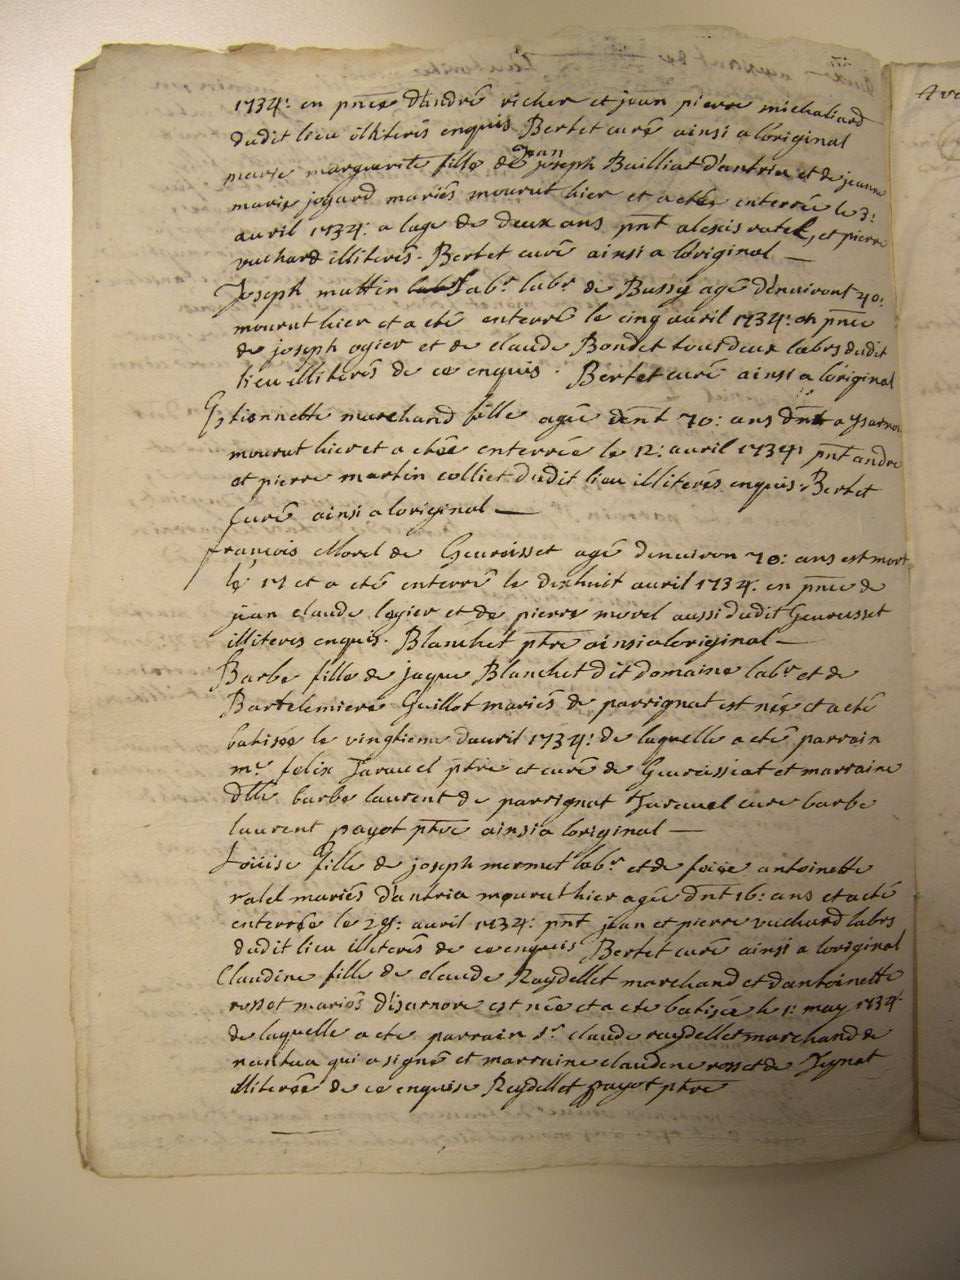 1734: en pnce d'andré richer et jean pierre michaliard
dudit lieu illiterés enquis Bertet curé ainsi a loriginal
marie marguerite fille de Jean joseph Bailliat d'antria et de jeanne
marie jogard mariés mourut hier et a eté enterrée le 3:
auril 1734: a lage de deux ans pnt alexis ratel, et pierre
vuchard illiterés. Bertet curé ainsi a loriginal
Joseph mattin labr labr de Bussy agé d'enuiront 40:
mourut hier et a eté enterré le cinq auril 1734: en pnce
de joseph ogier et de claude Bondet tout deux labrs dudit
lieu illiterés de ce enquis. Bertet curé ainsi a loriginal
Estiennette marchand fille agée dent 70: ans dnt a ysarno
mourut hier et a eteé enterrée le 12: auril 1734: pnt andre
et pierre martin colliet dudit lieu illiterés enquis. Bertet
curé ainsi a loriginal
francois Morel de Geuroisset agé denuiron 70: ans est mort
le 17 et a eté enterré le dixhuit auril 1734: en pnce de
jean claude logier et de pierre morel aussi dudit Geurisset
illiteres enquis. Blanchet ptre ainsi a loriginal
Barbe fille de jaque Blanchet dit domaine labr et de
Bartelemiere Guillot mariés de parrignat est née et a eté
batisee le vingtieme dauril 1734: de laquelle a eté parrain
mr felix Jarauel ptre et curé de Geurissiat et marraine
dlle barbe laurent de parrignat Jarauel cure barbe
laurent payot ptre ainsi a loriginal
Louise fille de joseph mermet labr et de feüe antoinette
ratel mariés d'antria mourut hier agée dnt 16: ans et a eté
enterrée le 29: auril 1734: pnt jean et pierre vuchard labrs
dudit lieu illiterés de ce enquis Bertet curé ainsi a loriginal
Claudine fille de claude Reydellet marchand et dantoinette
rosset mariés disarnore est née et a eté batisée le 1: may 1734:
de laquelle a ete parrain sr claude reydellet marchand de
nantua qui a signé et marraine claudine rosset de Jignat
illiterée de ce enquise Reydellet payot ptre